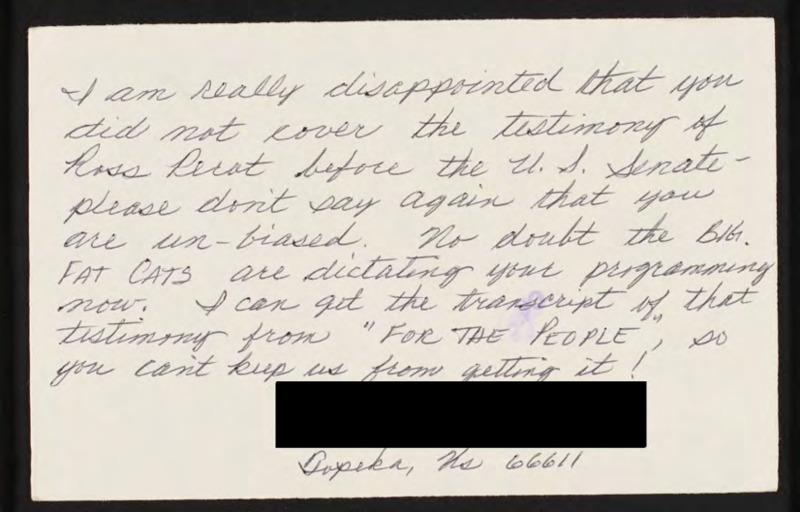 I am really disappointed that you
did not cover the testimony of
Ross Perot before the U. S. Senate -
please don't say again that you
are un-biased. No doubt the BIG.
FAT CATS are dictating your programming
now. I can get the transcript of that
testimony from "FOR THE PEOPLE", so
you can't keep us from getting it!
Topeka, Ks 66611